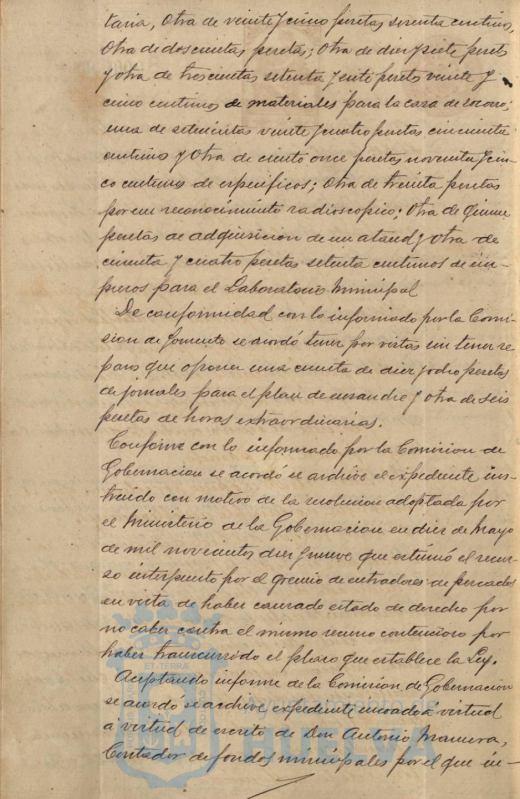 taria, Otra de veinte y cinco pesetas sesenta centimos,
Otra de doscientas pesetas; Otra de diez y siete pesets
y otra de trescientas setenta y siete pesets veinte y
cinco centimos de materiales para la casa de socorro;
una de setecientas veinte y cuatro pesetas cincuenta
centimos y Otra de ciento once pesetas noventa y cin-
co centimos de especificos; Otra de treinta pesetas
por un reconocimiento radioscopico; Otra de quince
pesetas de adquisicion de un ataud y otra de
cincuenta y cuatro pesetas setenta centimos de im-
presos para el Laboratorio Municipal
De conformidad con lo informado por la Comi-
sion de fomento se acordó tener por vistas sin tener re-
paros que oponer una cuenta de diez y ocho pesetas
de jornales para el plan de ensanche y otra de seis
pesetas de horas extraordinarias.
Conforme con lo informado por la Comision de
Gobernacion se acordó se archive el expediente ins-
truido con motivo de la resolucion adoptada por
el Ministerio de la Gobernacion en diez de Mayo
de mil novecientos diez y nueve que estimó el recur-
so interpuesto por el gremio de entradores de pescados
en vista de haber causado estado de derecho por
no caber contra el mismo recurso contencioso por
haber transcurrido el plazo que establece la Ley.
Aceptando informe de la Comision de Gobernacion
se acordó se archive expediente incoado á virtud
á virtud de escrito de Don Antonio
Contador de fondos municipales por el que in-
ET TERRA
HUELVA